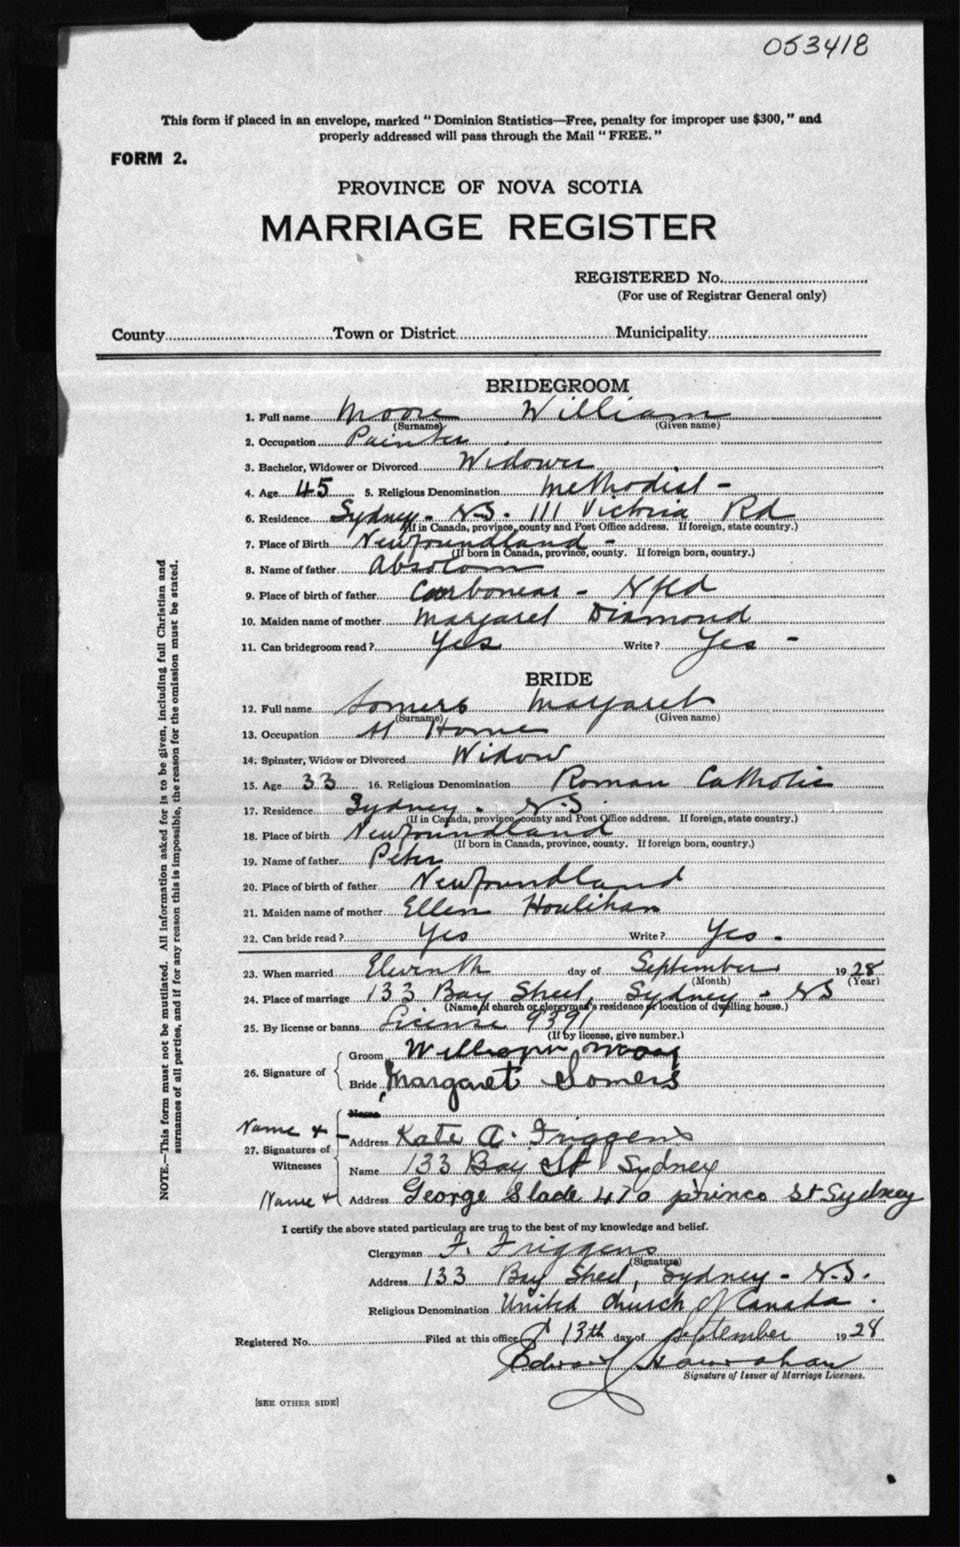 053418
This form if placed in an envelope, marked "Dominion Statistics—Free, penalty for improper use $300," and
properly addressed will pass through the Mail "FREE."
FORM 2.
PROVINCE OF NOVA SCOTIA
MARRIAGE REGISTER
REGISTERED No.
(For use of Registrar General only)
County Town or District Municipality
BRIDEGROOM
1. Full name Moore William
(Surname) (Given name)
2. Occupation Painter
3. Bachelor, Widower or Divorced Widower
4. Age 45 5. Religious Denomination Methodist -
6. Residence Sydney - N.S. 111 Victoria Rd
(If in Canada, province, county and Post Office address. If foreign, state country.)
7. Place of Birth Newfoundland -
(If born in Canada, province, county. If foreign born, country.)
8. Name of father Absolom
9. Place of birth of father Carbonear - Nfld
10. Maiden name of mother Margaret Diamond
11. Can bridegroom read? Yes Write? Yes -
BRIDE
12. Full name Somers Margaret
(Surname) (Given name)
13. Occupation At Home
14. Spinster, Widow or Divorced Widow
15. Age 33 16. Religious Denomination Roman Catholic
17. Residence Sydney - N.S.
(If in Canada, province, county and Post Office address. If foreign, state country.)
18. Place of birth Newfoundland
(If born in Canada, province, county. If foreign born, country.)
19. Name of father Peter
20. Place of birth of father Newfoundland
21. Maiden name of mother Ellen Houlihan
22. Can bride read? Yes Write? Yes -
23. When married Eleventh day of September 1928
(Month) (Year)
24. Place of marriage 133 Bay Street, Sydney - NS
(Name of church or clergyman's residence or location of dwelling house.)
25. By license or banns License 9391
(If by license, give number.)
26. Signature of Groom William Moore
Bride Margaret Somers
Name
Name & Address Kate A. Friggens
27. Signatures of Witnesses
Name 133 Bay St Sydney
Name & Address George Slade 470 prince St Sydney
I certify the above stated particulars are true to the best of my knowledge and belief.
Clergyman F. Friggens
(Signature)
Address 133 Bay Street, Sydney - N.S.
Religious Denomination United Church of Canada.
Registered No. Filed at this office 13th day of September 1928
Edward
Signature of Issuer of Marriage Licenses.
[SEE OTHER SIDE]
NOTE.—This form must not be mutilated. All information asked for is to be given, including full Christian and
surnames of all parties, and if for any reason this is impossible, the reason for the omission must be stated.